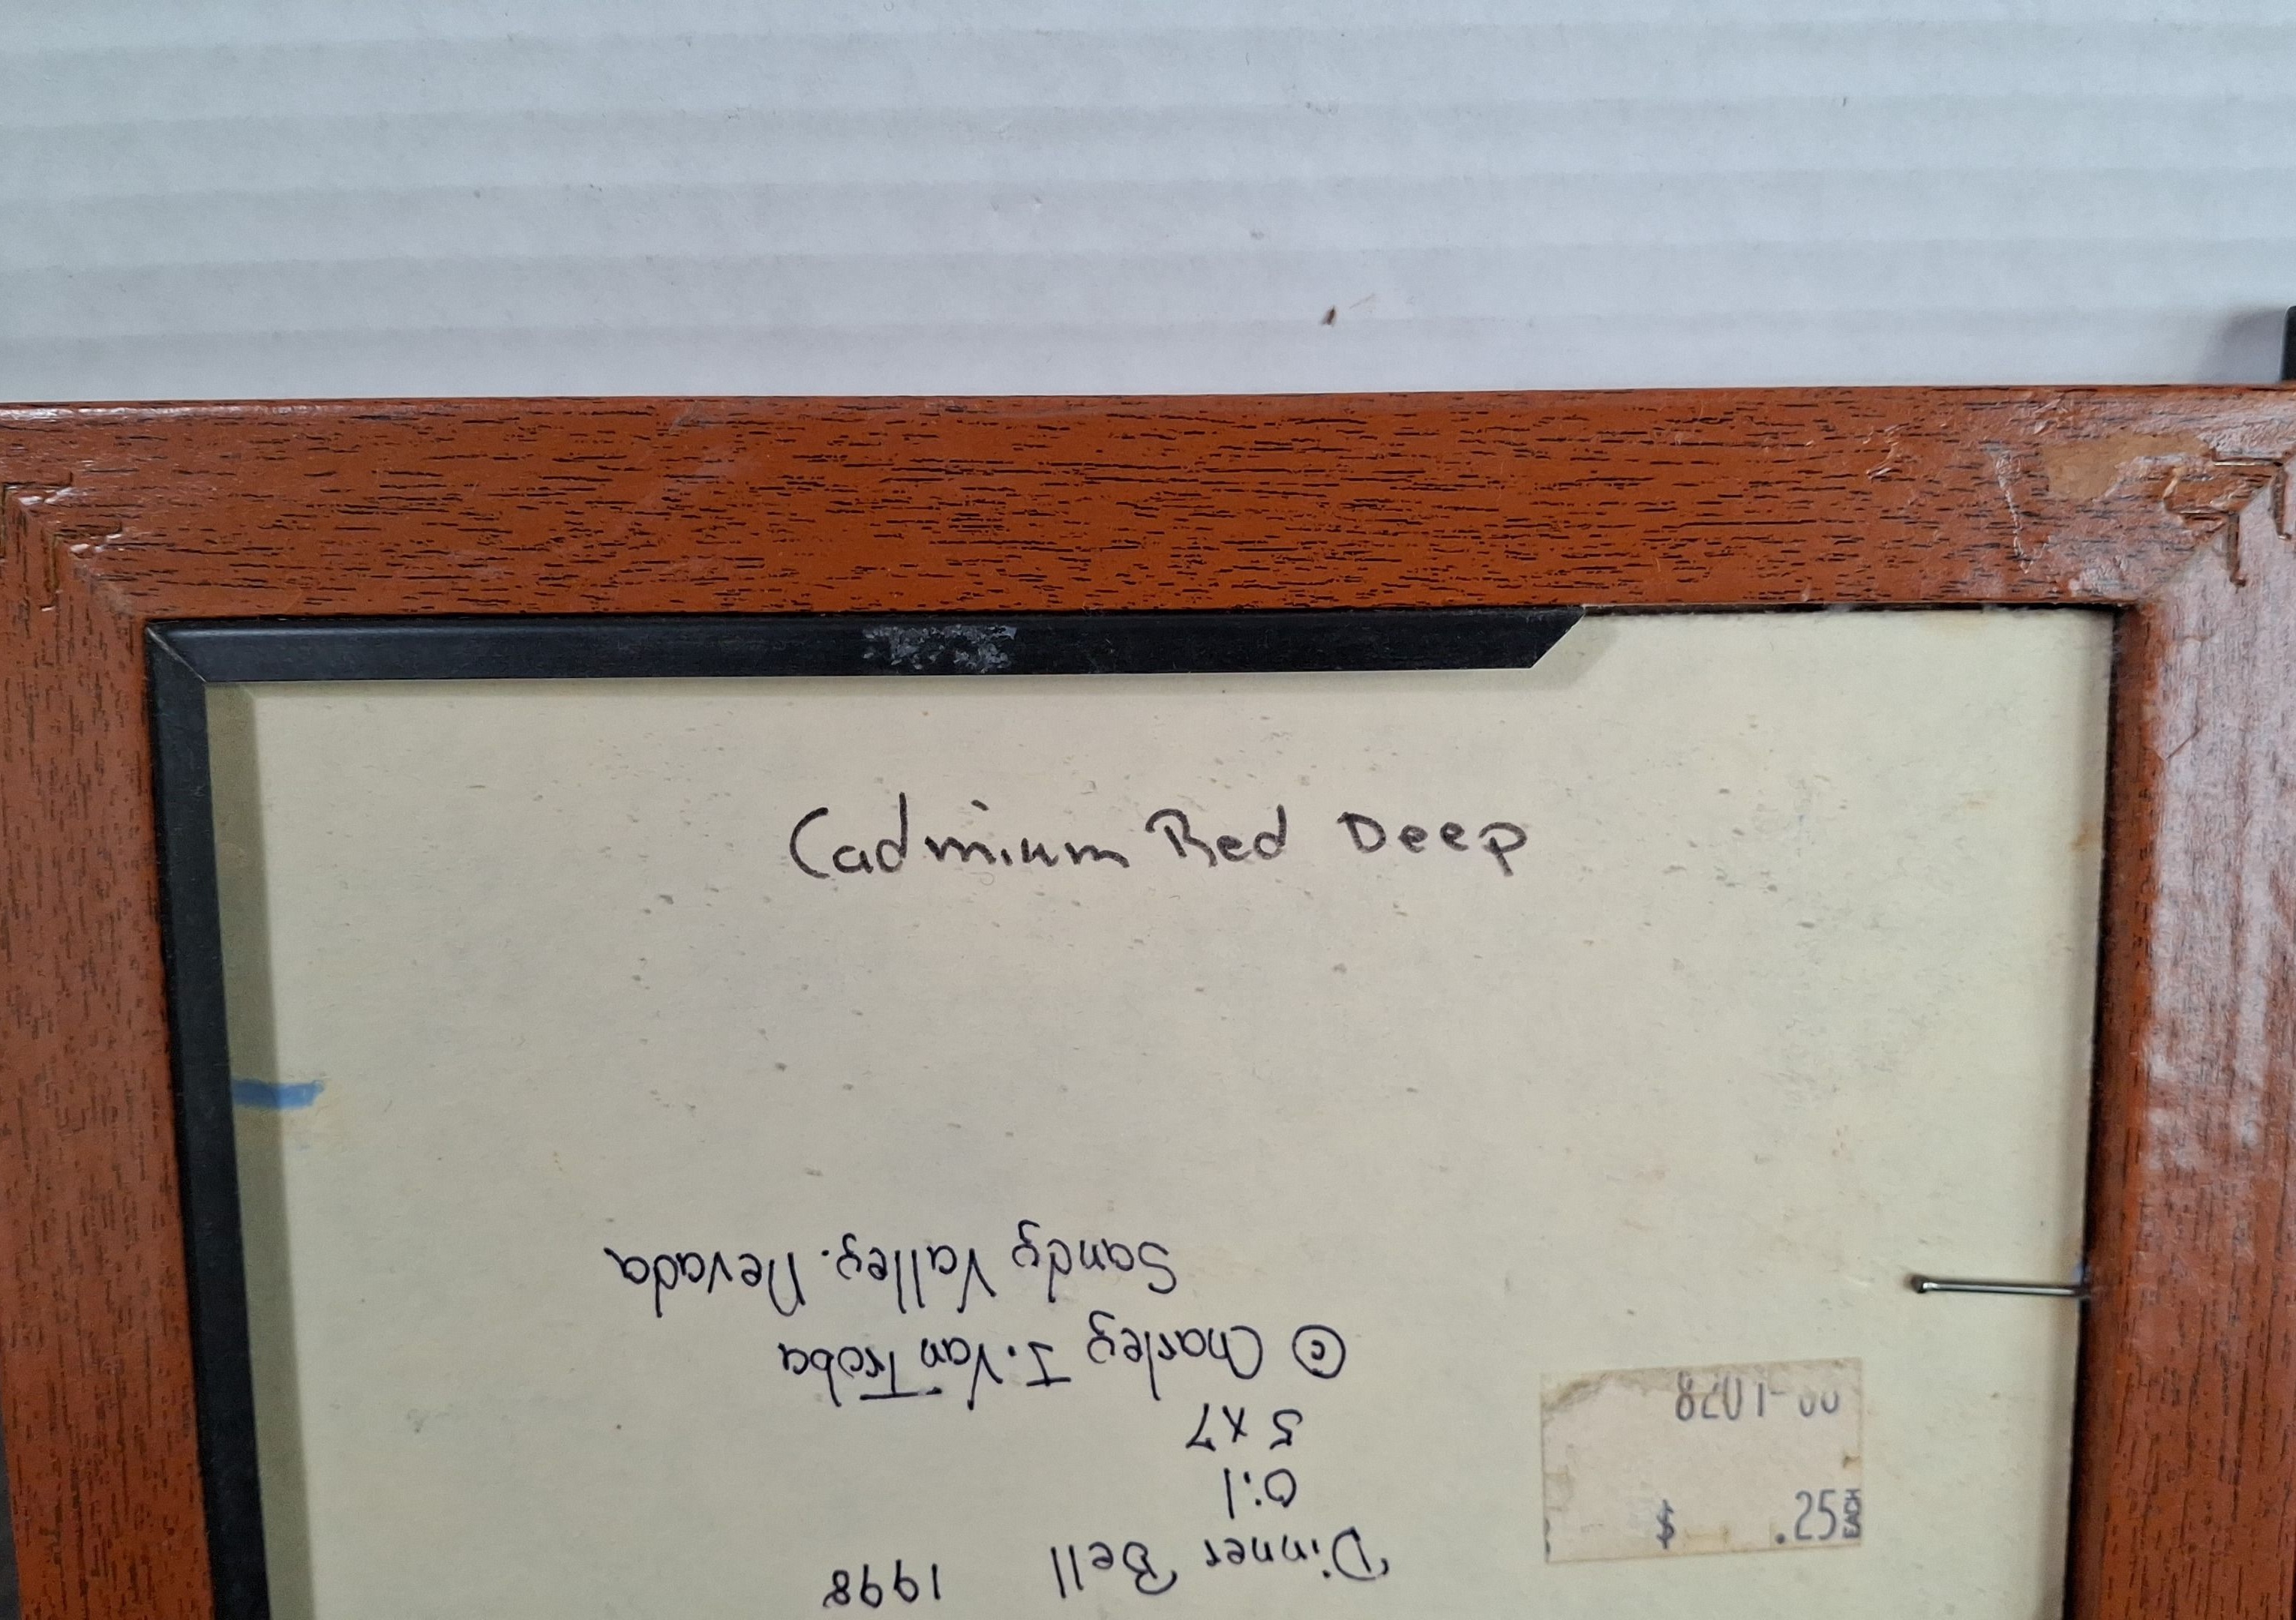 Cadmium Red Deep
Dinner Bell 1998
Oil
5 x 7
© Charley I. Van Troba
Sandy Valley. Nevada
$ .25 EACH